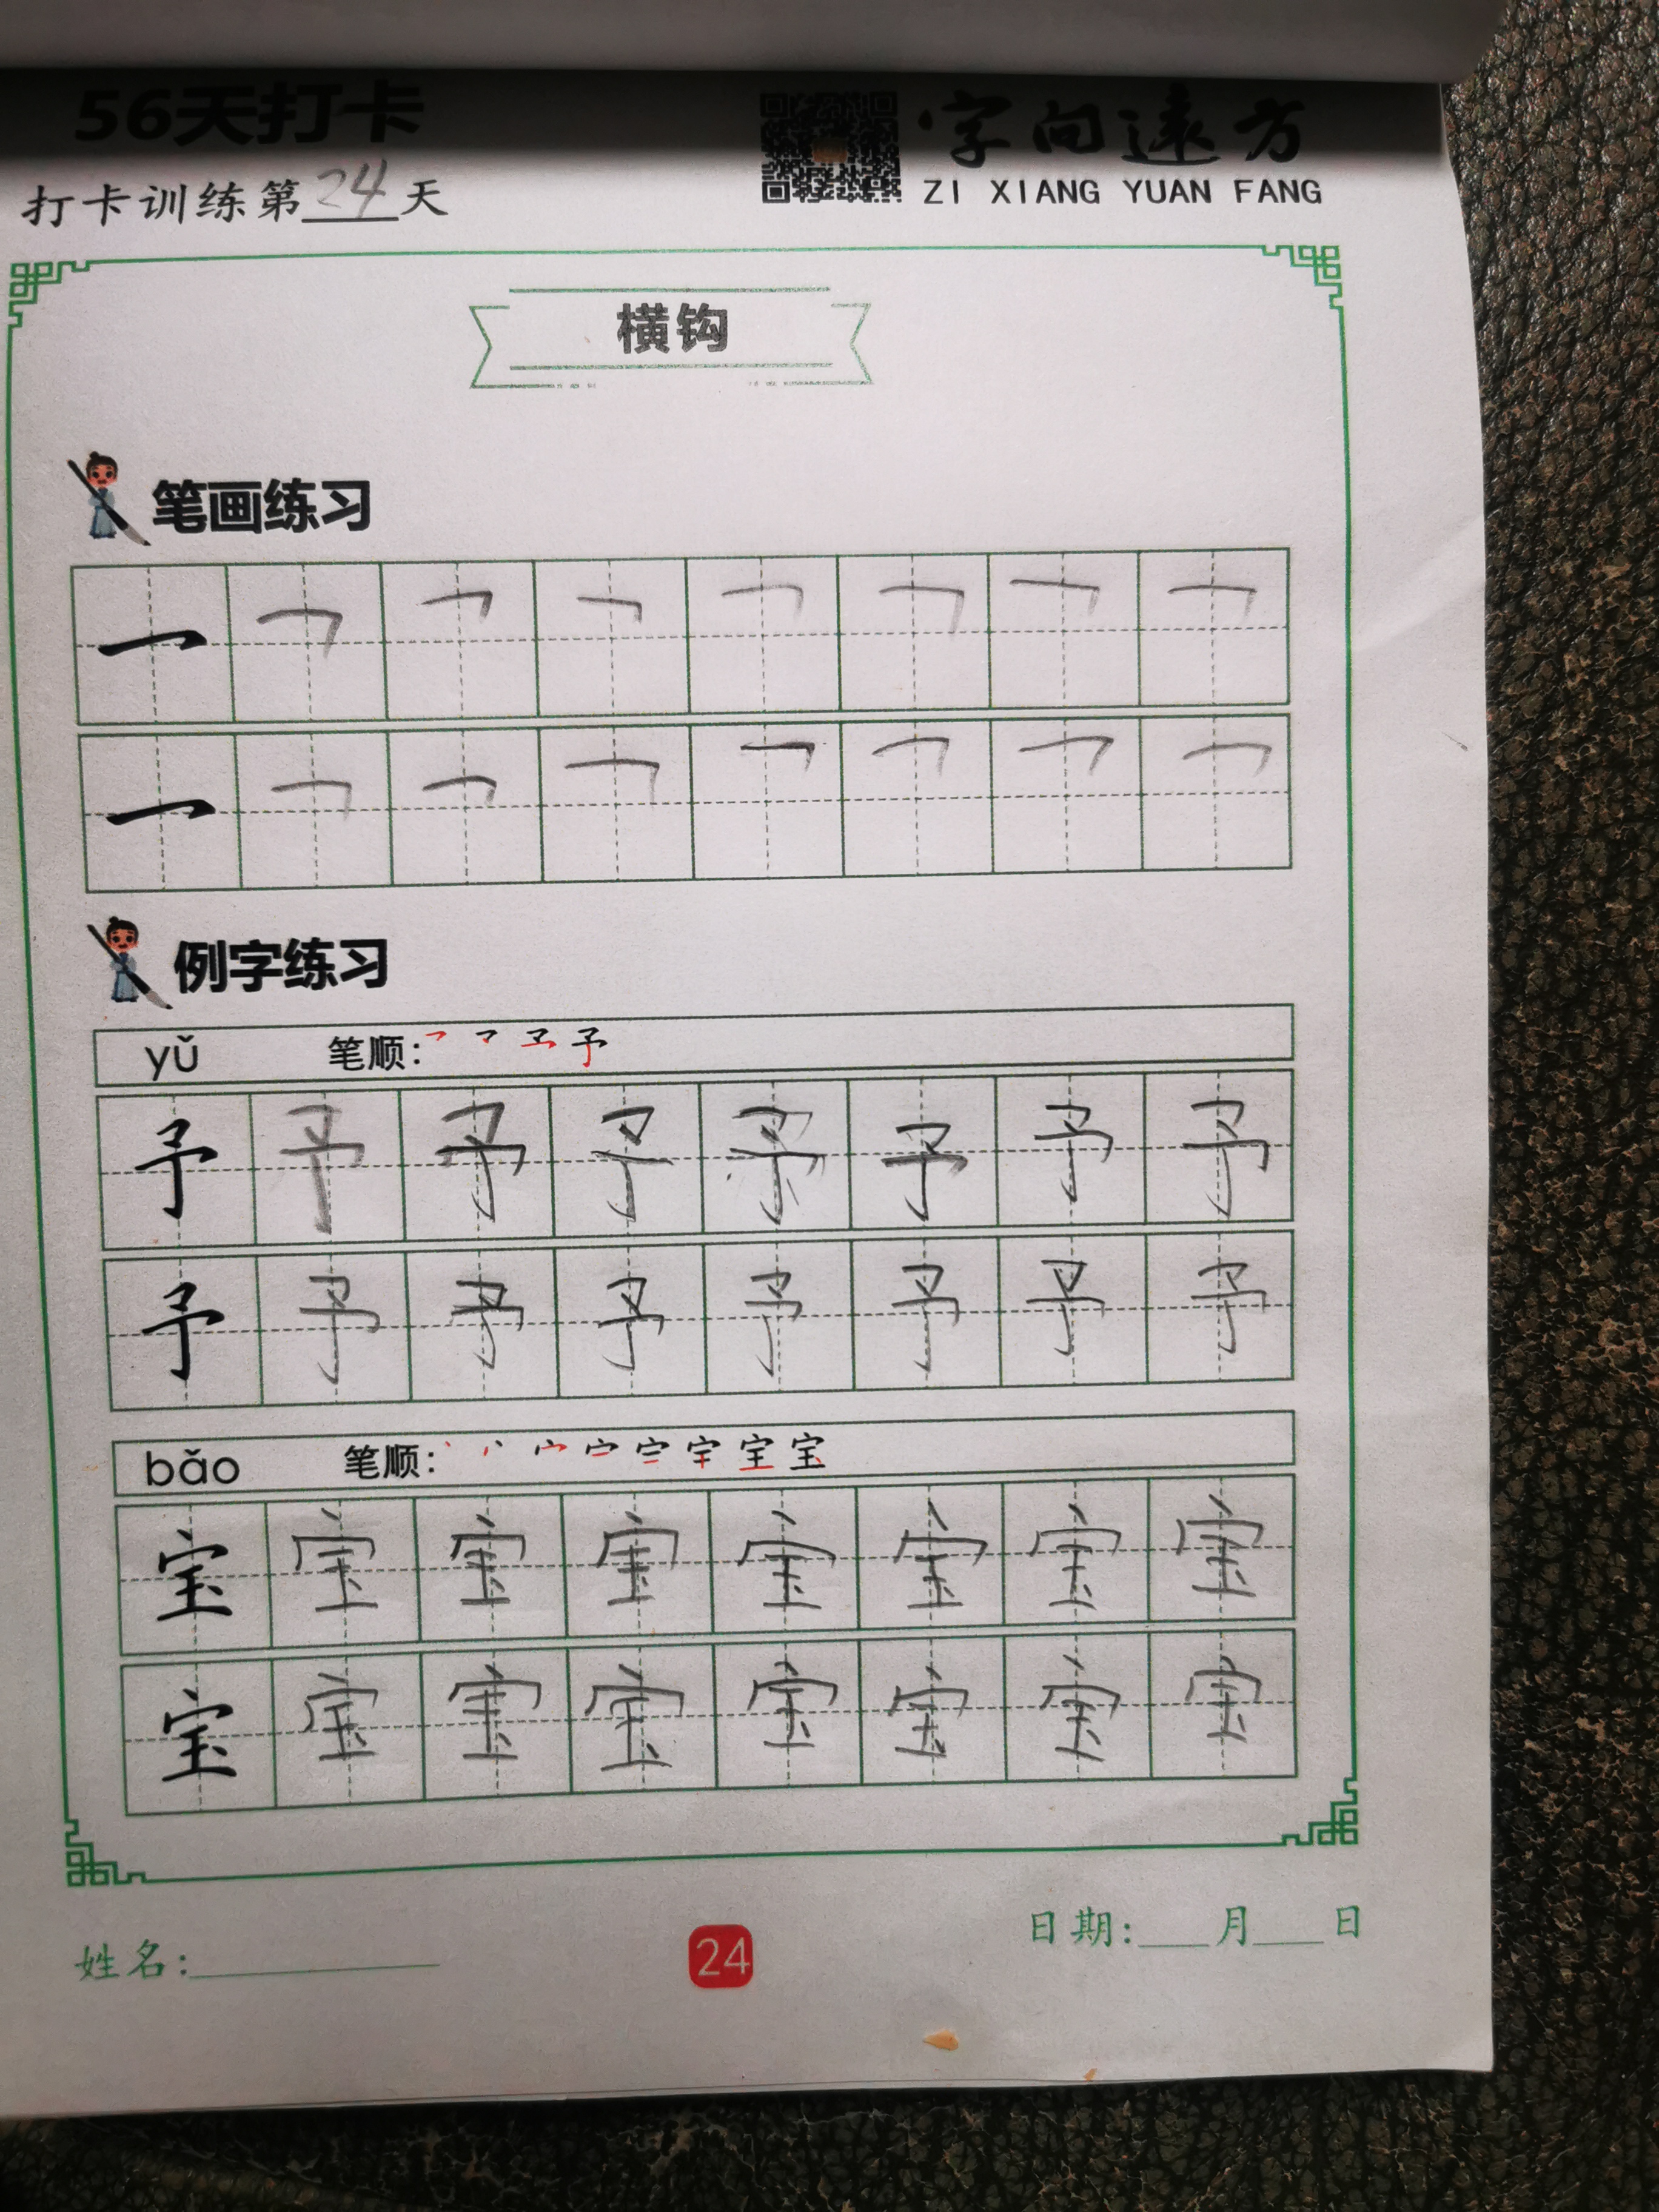 56天打卡
字向遠方
打卡训练第24天
ZI XIANG YUAN FANG
横钩
笔画练习
例字练习
yǔ 笔顺:
予 予 予 予 予 予 予 予
予 予 予 予 予 予 予 予
bǎo 笔顺: 宝
宝 宝 宝 宝 宝 宝 宝 宝
宝 宝 宝 宝 宝 宝 宝 宝
姓名: 24 日期: 月 日